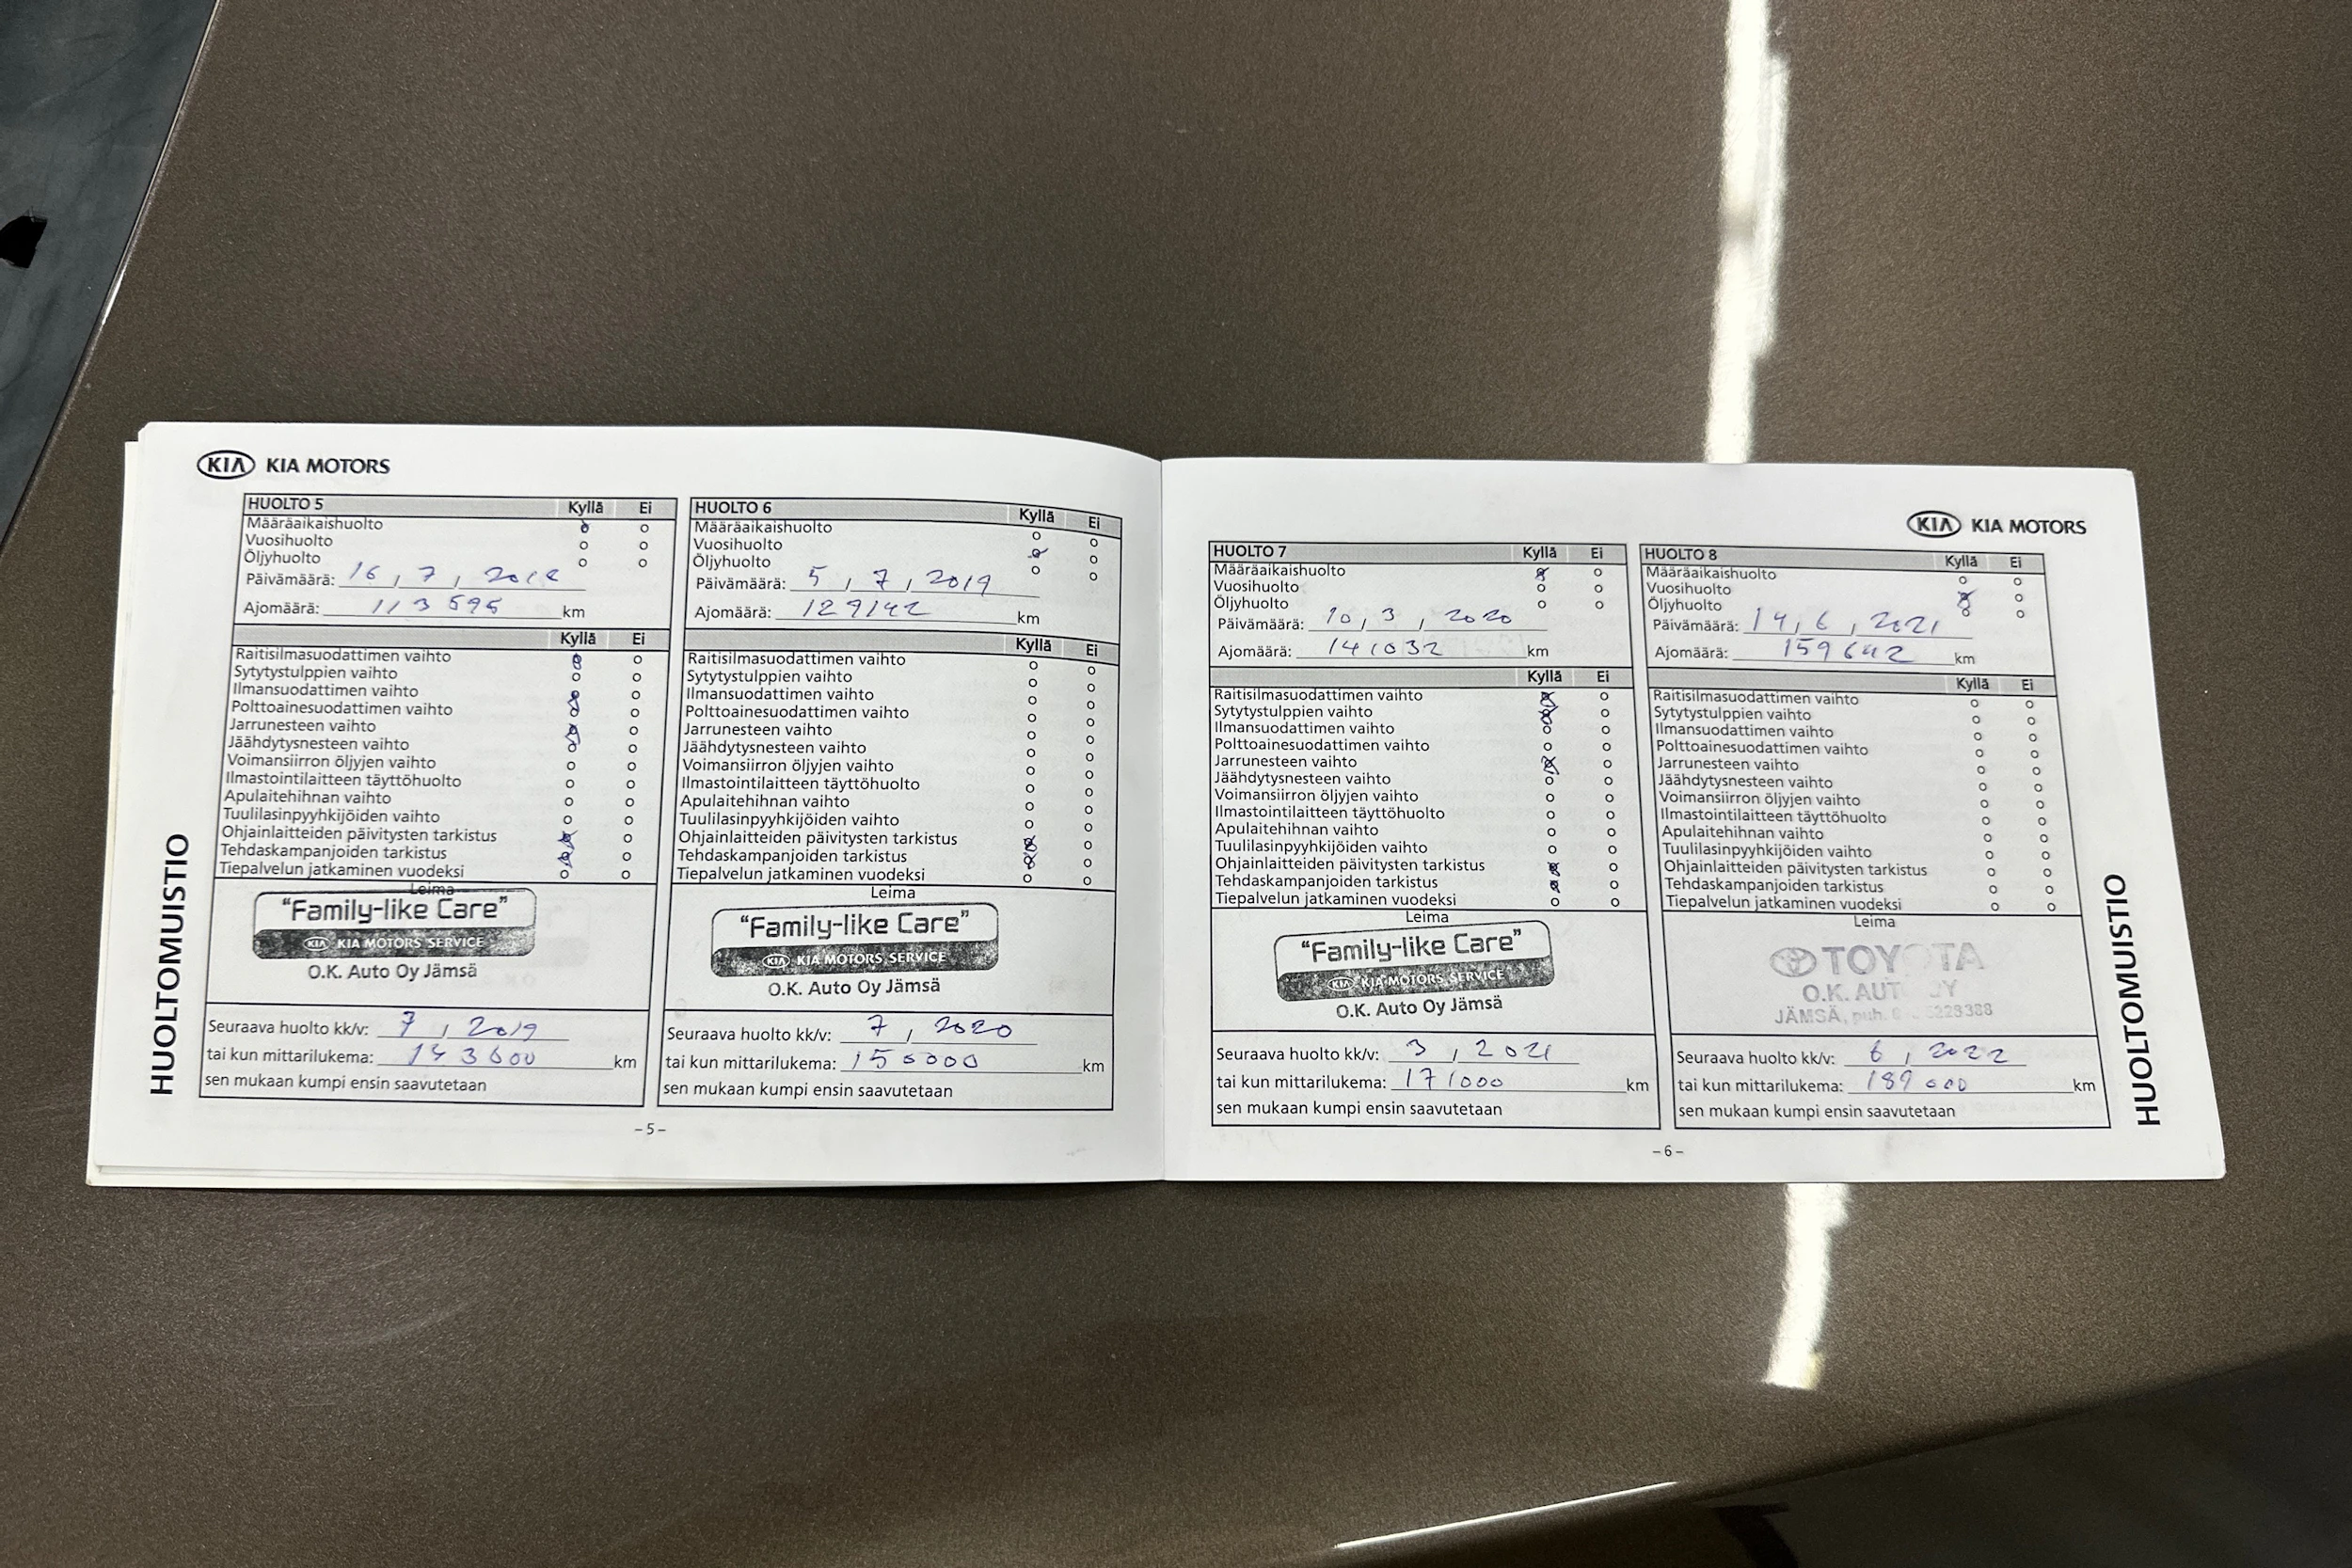 KIA KIA MOTORS
HUOLTOMUISTIO
HUOLTO 5 Kyllä Ei
Määräaikaishuolto
Vuosihuolto
Öljyhuolto
Päivämäärä: 16, 7, 2018
Ajomäärä: 113595 km
Kyllä Ei
Raitisilmasuodattimen vaihto
Sytytystulppien vaihto
Ilmansuodattimen vaihto
Polttoainesuodattimen vaihto
Jarrunesteen vaihto
Jäähdytysnesteen vaihto
Voimansiirron öljyjen vaihto
Ilmastointilaitteen täyttöhuolto
Apulaitehihnan vaihto
Tuulilasinpyyhkijöiden vaihto
Ohjainlaitteiden päivitysten tarkistus
Tehdaskampanjoiden tarkistus
Tiepalvelun jatkaminen vuodeksi
Leima
"Family-like Care"
KIA KIA MOTORS SERVICE
O.K. Auto Oy Jämsä
Seuraava huolto kk/v: 7, 2019
tai kun mittarilukema: 143600 km
sen mukaan kumpi ensin saavutetaan
HUOLTO 6 Kyllä Ei
Määräaikaishuolto
Vuosihuolto
Öljyhuolto
Päivämäärä: 5, 7, 2019
Ajomäärä: 129142 km
Kyllä Ei
Raitisilmasuodattimen vaihto
Sytytystulppien vaihto
Ilmansuodattimen vaihto
Polttoainesuodattimen vaihto
Jarrunesteen vaihto
Jäähdytysnesteen vaihto
Voimansiirron öljyjen vaihto
Ilmastointilaitteen täyttöhuolto
Apulaitehihnan vaihto
Tuulilasinpyyhkijöiden vaihto
Ohjainlaitteiden päivitysten tarkistus
Tehdaskampanjoiden tarkistus
Tiepalvelun jatkaminen vuodeksi
Leima
"Family-like Care"
KIA KIA MOTORS SERVICE
O.K. Auto Oy Jämsä
Seuraava huolto kk/v: 7, 2020
tai kun mittarilukema: 150000 km
sen mukaan kumpi ensin saavutetaan
- 5 -
KIA KIA MOTORS
HUOLTO 7 Kyllä Ei
Määräaikaishuolto
Vuosihuolto
Öljyhuolto
Päivämäärä: 10, 3, 2020
Ajomäärä: 141032 km
Kyllä Ei
Raitisilmasuodattimen vaihto
Sytytystulppien vaihto
Ilmansuodattimen vaihto
Polttoainesuodattimen vaihto
Jarrunesteen vaihto
Jäähdytysnesteen vaihto
Voimansiirron öljyjen vaihto
Ilmastointilaitteen täyttöhuolto
Apulaitehihnan vaihto
Tuulilasinpyyhkijöiden vaihto
Ohjainlaitteiden päivitysten tarkistus
Tehdaskampanjoiden tarkistus
Tiepalvelun jatkaminen vuodeksi
Leima
"Family-like Care"
KIA KIA MOTORS SERVICE
O.K. Auto Oy Jämsä
Seuraava huolto kk/v: 3, 2021
tai kun mittarilukema: 171000 km
sen mukaan kumpi ensin saavutetaan
HUOLTO 8 Kyllä Ei
Määräaikaishuolto
Vuosihuolto
Öljyhuolto
Päivämäärä: 14, 6, 2021
Ajomäärä: 159642 km
Kyllä Ei
Raitisilmasuodattimen vaihto
Sytytystulppien vaihto
Ilmansuodattimen vaihto
Polttoainesuodattimen vaihto
Jarrunesteen vaihto
Jäähdytysnesteen vaihto
Voimansiirron öljyjen vaihto
Ilmastointilaitteen täyttöhuolto
Apulaitehihnan vaihto
Tuulilasinpyyhkijöiden vaihto
Ohjainlaitteiden päivitysten tarkistus
Tehdaskampanjoiden tarkistus
Tiepalvelun jatkaminen vuodeksi
Leima
TOYOTA
O.K. AUTO OY
JÄMSÄ, puh.
Seuraava huolto kk/v: 6, 2022
tai kun mittarilukema: 189000 km
sen mukaan kumpi ensin saavutetaan
- 6 -
HUOLTOMUISTIO